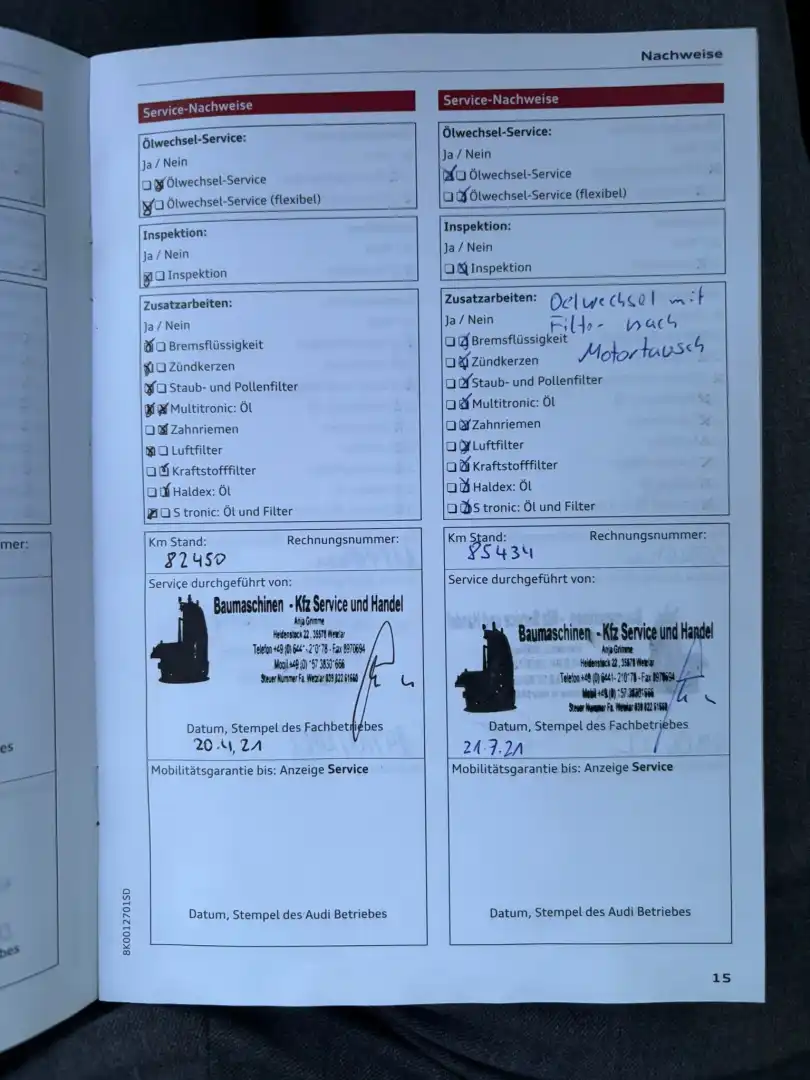 Nachweise
Service-Nachweise
Ölwechsel-Service:
Ja / Nein
Ölwechsel-Service
Ölwechsel-Service (flexibel)
Inspektion:
Ja / Nein
Inspektion
Zusatzarbeiten:
Ja / Nein
Bremsflüssigkeit
Zündkerzen
Staub- und Pollenfilter
Multitronic: Öl
Zahnriemen
Luftfilter
Kraftstofffilter
Haldex: Öl
S tronic: Öl und Filter
Km Stand: Rechnungsnummer:
82450
Service durchgeführt von:
Baumaschinen - Kfz Service und Handel
Anja Grimme
Heidenstock 22, 35578 Wetzlar
Telefon +49 (0) 6441-210178 - Fax 8970694
Steuer Nummer Fa. Wetzlar
Datum, Stempel des Fachbetriebes
20.4.21
Mobilitätsgarantie bis: Anzeige Service
Datum, Stempel des Audi Betriebes
Service-Nachweise
Ölwechsel-Service:
Ja / Nein
Ölwechsel-Service
Ölwechsel-Service (flexibel)
Inspektion:
Ja / Nein
Inspektion
Zusatzarbeiten: Oelwechsel mit
Ja / Nein Filter nach
Bremsflüssigkeit Motortausch
Zündkerzen
Staub- und Pollenfilter
Multitronic: Öl
Zahnriemen
Luftfilter
Kraftstofffilter
Haldex: Öl
S tronic: Öl und Filter
Km Stand: Rechnungsnummer:
85434
Service durchgeführt von:
Baumaschinen - Kfz Service und Handel
Anja Grimme
Heidenstock 22, 35578 Wetzlar
Telefon +49 (0) 6441-210178 - Fax 8970694
Steuer Nummer Fa. Wetzlar
Datum, Stempel des Fachbetriebes
21.7.21
Mobilitätsgarantie bis: Anzeige Service
Datum, Stempel des Audi Betriebes
8K0012701SD
15
mer:
es
bes